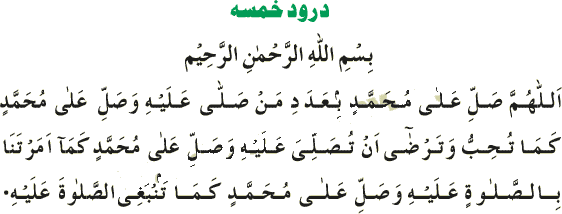 درود خمسه
بِسْمِ اللهِ الرَّحْمٰنِ الرَّحِيْمِ
اَللّٰهُمَّ صَلِّ عَلٰى مُحَمَّدٍ بِۢعَدَدِ مَنْ صَلّٰى عَلَيْهِ وَصَلِّ عَلٰى مُحَمَّدٍ
كَمَا تُحِبُّ وَتَرْضٰٓى اَنْ تُصَلِّىَ عَلَيْهِ وَصَلِّ عَلٰى مُحَمَّدٍ كَمَآ اَمَرْتَنَا
بِالصَّلٰوةِ عَلَيْهِ وَصَلِّ عَلٰى مُحَمَّدٍ كَمَا تَنْۢبَغِى الصَّلٰوةَ عَلَيْهِ.